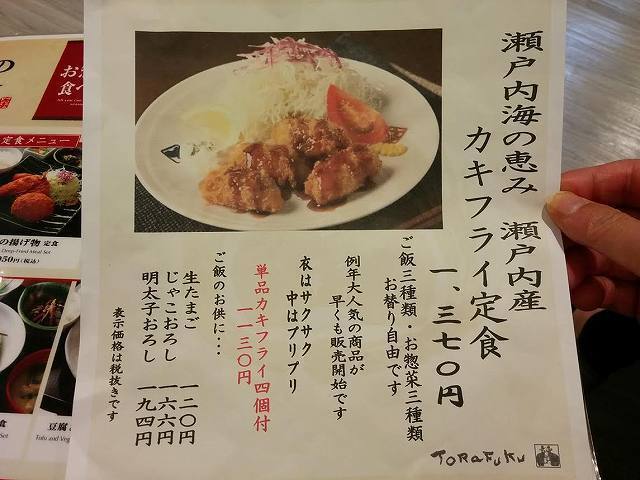 瀬戸内海の恵み 瀬戸内産
カキフライ定食
一、三七〇円
ご飯三種類・お惣菜三種類
お替り自由です
例年大人気の商品が
早くも販売開始です
衣はサクサク
中はプリプリ
単品カキフライ四個付
一一三〇円
ご飯のお供に・・・
生たまご 一二〇円
じゃこおろし 一六六円
明太子おろし 一九四円
表示価格は税抜きです
TORAFUKU
の
お
食べ
定食メニュー
の揚げ物 定食
Deep-Fried Meal Set
950円(税込)
Set
豆腐
Tofu and Veg